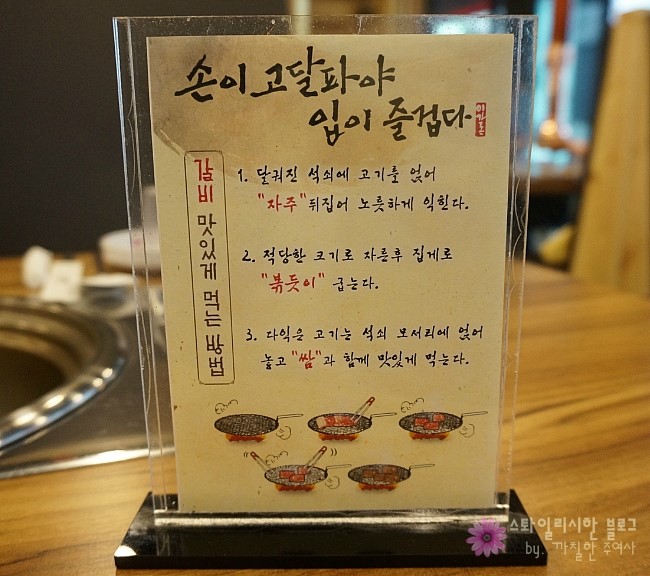 손이 고달파야
입이 즐겁다
갈비 맛있게 먹는 방법
1. 달궈진 석쇠에 고기를 얹어
"자주"뒤집어 노릇하게 익힌다.
2. 적당한 크기로 자른후 집게로
"볶듯이" 굽는다.
3. 다익은 고기는 석쇠 모서리에 얹어
놓고"쌈"과 함께 맛있게 먹는다.
스톼일리시한 블로그
by. 까칠한 주여사